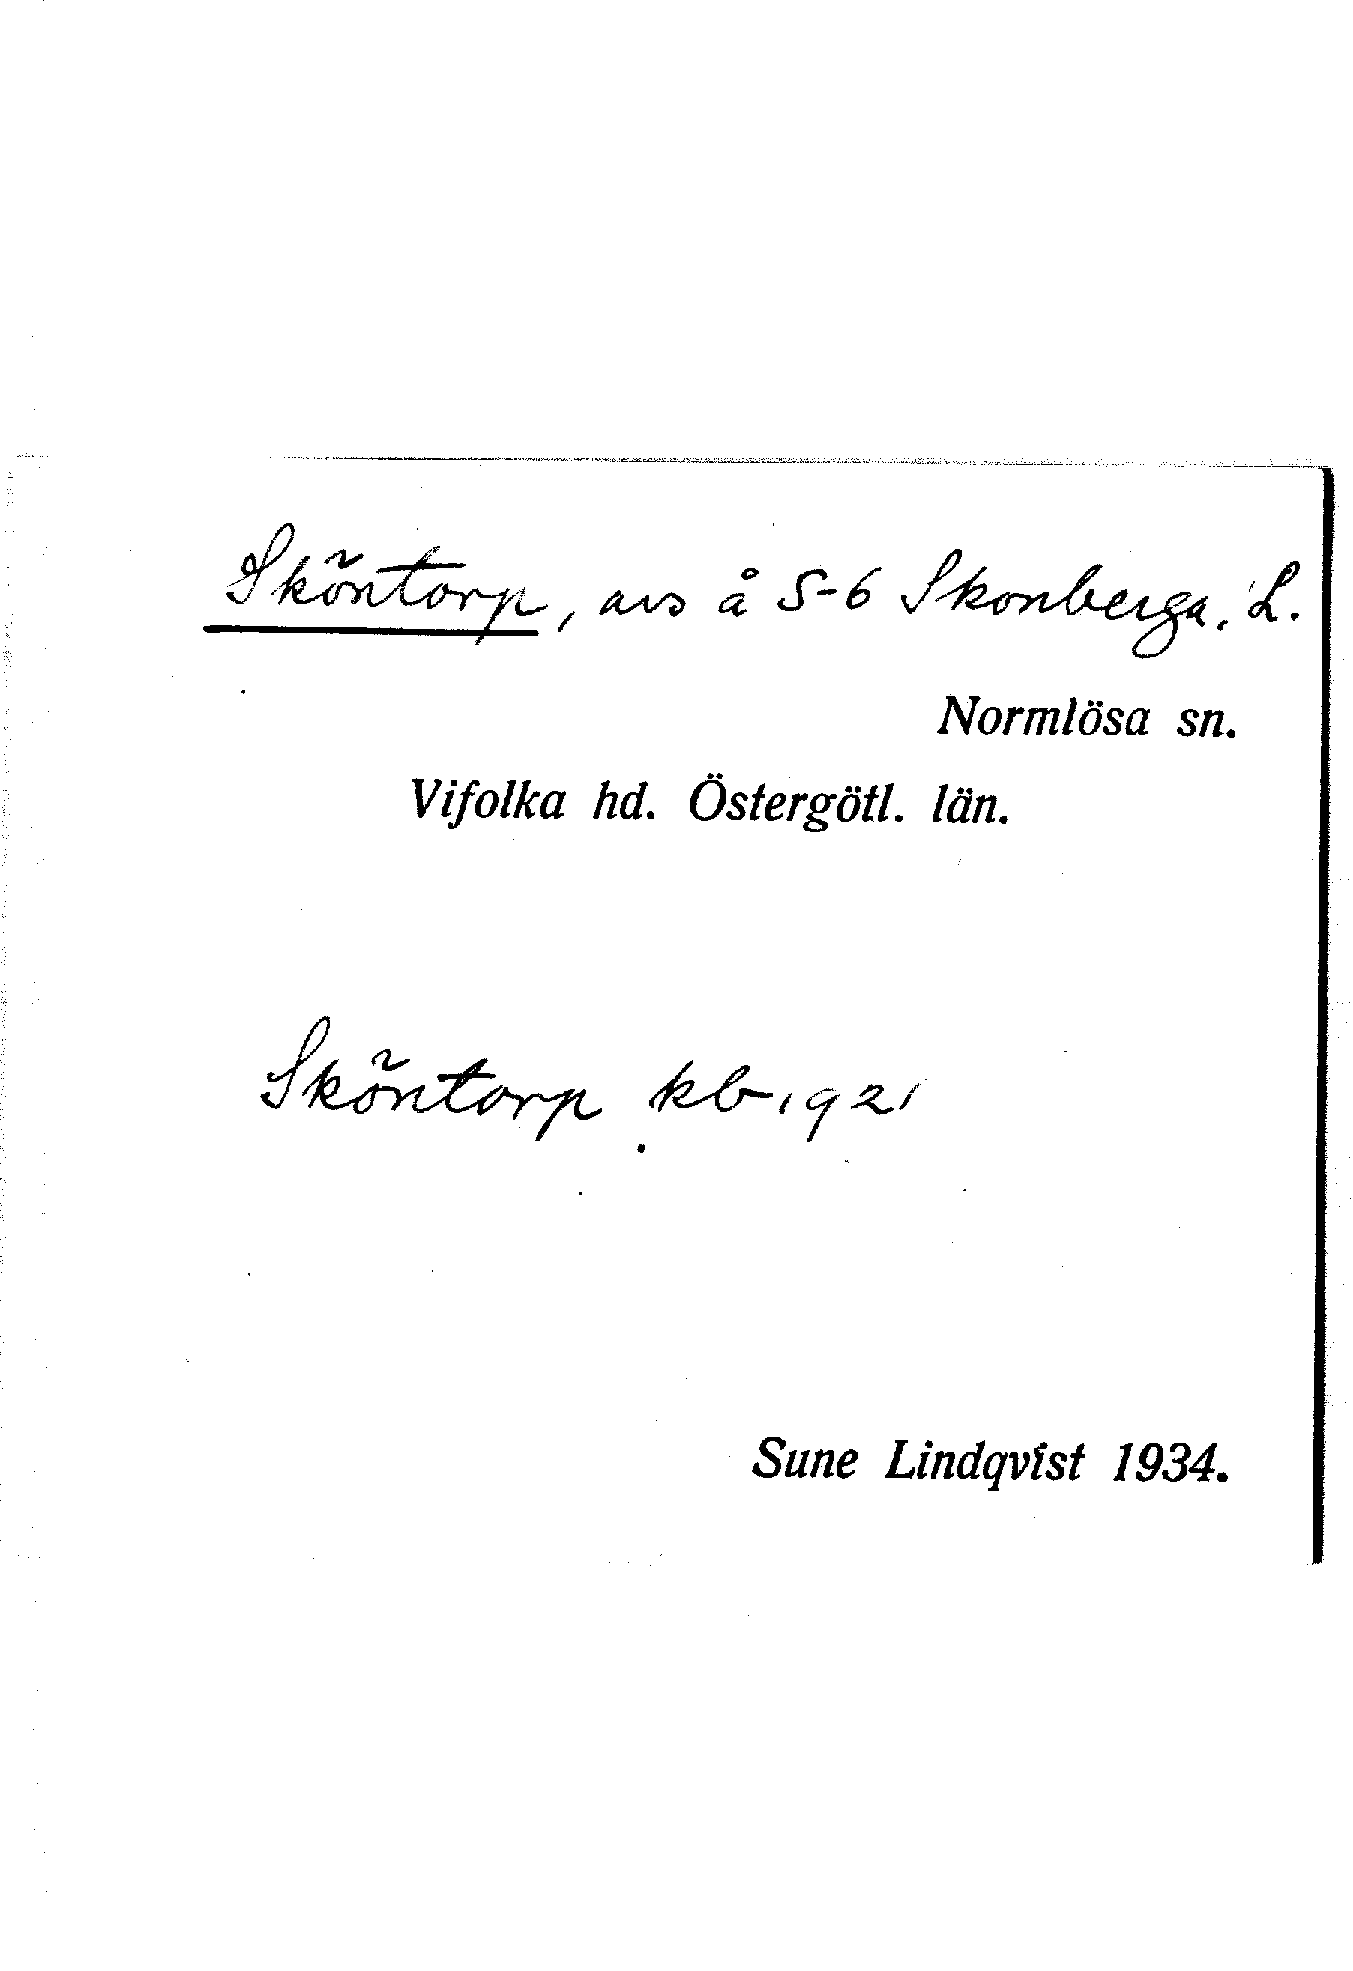 Sköntorp, avs å 5-6 Skonberga. L.
Normlösa sn.
Vifolka hd. Östergötl. län.
Sköntorp kb 1921
Sune Lindqvist 1934.